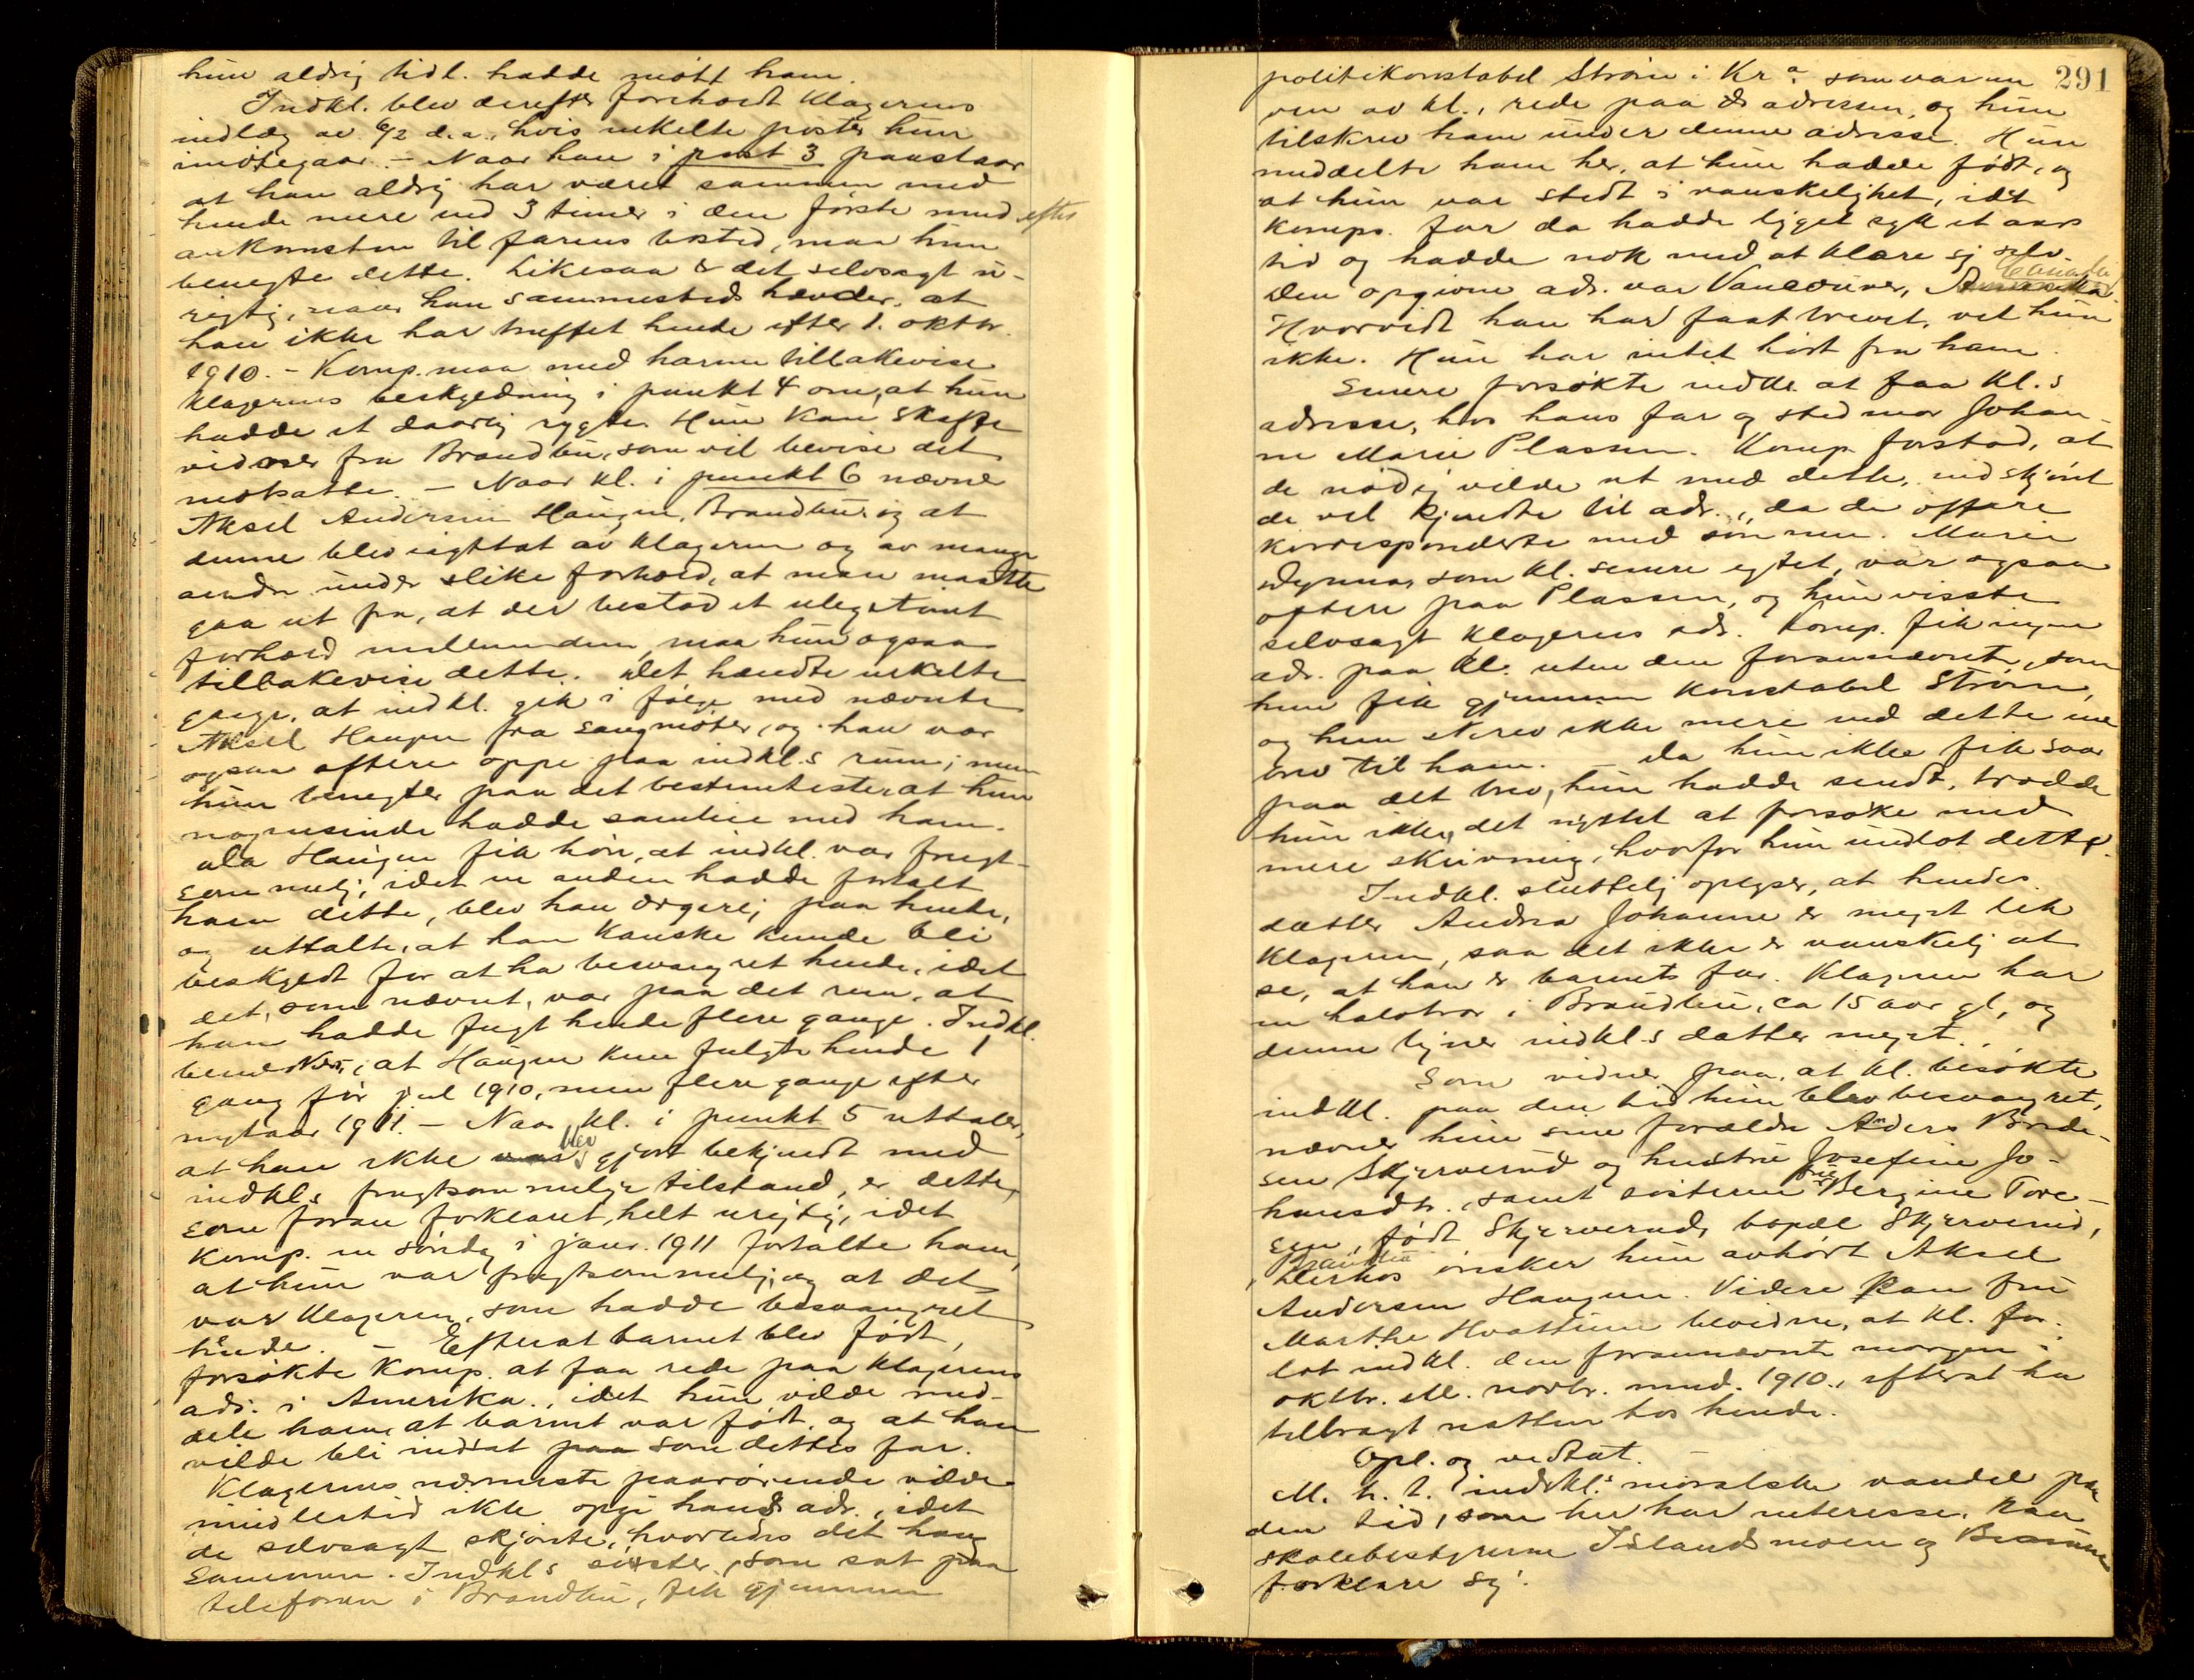 hun aldrig tidl. hadde møtt ham.
Indkl. blev derefter foreholdt klagerens
indlæg av 6/2 d.a., hvis enkelte poster hun
imøtegaar. – Naar han i post 3 paastaar
at han aldrig har været sammen med
hende mere end 3 timer i den første mnd efter
ankomsten til farens bosted, maa hun
benegte dette. Likesaa er det selvsagt u-
rigtig, naar han sammesteds hævder, at
han ikke har truffet hende efter 1. oktbr.
1910. – Komp. maa med harme tilbakevise
klagerens beskyldning i punkt 4 om, at hun
hadde et daarlig rygte. Hun kan skaffe
vidner fra Brandbu, som vil bevise det
motsatte. – Naar kl. i punkt 6 nævner
Aksel Andersen Haugen, Brandbu, og at
denne blev iagttat av klageren og av mange
andre under slike forhold, at man maatte
gaa ut fra, at der bestod et ulegetimt
forhold mellem dem, maa hun ogsaa
tilbakevise dette. Det hændte enkelte
gange, at indkl. gik i følge med nævnte
Aksel Haugen fra sangmøter, og han var
ogsaa oftere oppe paa indkl.s rum; men
hun benegter paa det bestemteste, at hun
nogensinde hadde samleie med ham.
Da Haugen fik høre, at indkl. var frugt-
sommelig, idet en anden hadde fortalt
ham dette, blev han ærgerlig paa hende,
og uttalte, at han kanske kunde bli
beskyldt for at ha besvangret hende, idet
det, som nævnt, var paa det rene, at
han hadde fulgt hende flere gange. Indkl.
bemerker, at Haugen kun fulgte hende 1
gang før jul 1910, men flere gange efter
nytaar 1911. – Naar kl. i punkt 5 uttaler,
at han ikke var blev gjort bekjendt med
indkl.s frugtsommelige tilstand, er dette,
som foran forklaret, helt urigtig, idet
komp. en søndag i janr. 1911 fortalte ham,
at hun var frugtsommelig, og at det
var klageren, som hadde besvangret
hende. – Efterat barnet blev født,
forsøkte komp. at faa rede paa klagerens
adr. i Amerika, idet hun vilde med-
dele ham, at barnet var født, og at han
vilde bli indsat paa som dettes far.
Klagerens nærmeste paarørende vilde
imidlertid ikke opgi hans adr., idet
de selvsagt skjønte, hvorledes det hang
sammen. Indkl.s søster, som sat paa
telefonen i Brandbu, fik gjennem
291
politikonstabel Strøm i Kra. som var en
ven av kl., rede paa adressen, og hun
tilskrev ham under denne adresse. Hun
meddelte ham her, at hun hadde født, og
at hun var stedt i vanskelighet, idet
komps. far da hadde ligget syk et aars
tid og hadde nok med at klare sig selv.
Den opgivne adr. var Vancouver, Amerika Canada.
Hvorvidt han har faat brevet, vet hun
ikke. Hun har intet hørt fra ham.
Senere forsøkte indkl. at faa kl.s
adresse, hos hans far og stedmor Johan-
ne Marie Plassen. Komp. forstod, at
de nødig vilde ut med dette, endskjønt
de vel kjendte til adr., da de oftere
korresponderte med sønnen. Marie
Dynna, som kl. senere egtet, var ogsaa
oftere paa Plassen, og hun visste
selvsagt klagerens adr. Komp. fik ingen
adr. paa kl. uten den forannævnte, som
hun fik gjennem konstabel Strøm,
og hun skrev ikke mere end dette ene
brev til ham. – Da hun ikke fik svar
paa det brev, hun hadde sendt, trodde
hun ikke det nyttet at forsøke med
mere skrivning, hvorfor hun undlot dette.
Indkl. sluttelig oplyser, at hendes
datter Andrea Johanne er meget lik
klageren, saa det ikke er vanskelig at
se, at han er barnets far. Klageren har
en halvbror i Brandbu, ca 15 aar gl, og
denne ligner indkl.s datter meget.
Som vidner paa, at kl. besøkte
indkl. paa den tid hun blev besvangret,
nævner hun sine forældre Anders Brede-
sen Skjerverud og hustru Josefine Jo-
hansdtr., samt søsteren fru Bergine Tore-
sen, født Skjerverud, bopæl Skjerverud,
Brandbu
Derhos ønsker hun avhørt Aksel
Andersen Haugen. Videre kan fru
Marthe Hvattum bevidne, at kl. for-
lot indkl. den forannævnte morgen i
oktbr. ell. novbr. mnd. 1910, efterat ha
tilbragt natten hos hende.
Opl. og vedtat.
M. h. t. indkl.s moralske vandel paa
den tid, som her har interesse, kan
skolebestyrerne Islandsmoen og
forklare sig.